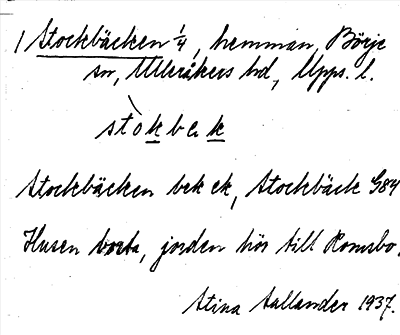 1 Stockbäcken 1/4, hemman, Börje
sn, Ulleråkers hd, Upps. l.
stòkbak
Stockbäcken bek ek, Stockbäck G84
Husen borta, jorden hör till Romsbo.
Stina Aallander 1937.